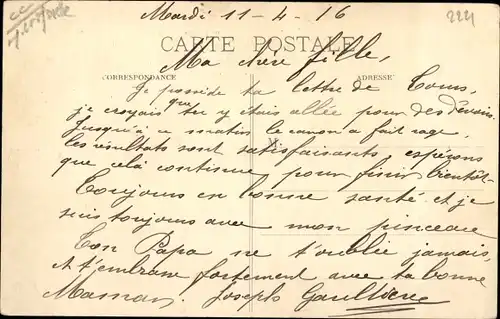 Mardi 11-4-16
2221
CARTE POSTALE
Ma chère fille,
CORRESPONDANCE
ADRESSE
Je possède ta lettre de Tours,
je croyais que tu y étais allée pour des dessins.
Jusqu'à ce matin le canon a fait rage,
les résultats sont satisfaisants espérons
que celà continue pour finir bientôt-
Toujours en bonne santé et je
suis toujours avec mon pinceau
Ton Papa ne t'oublie jamais,
et t'embrasse fortement avec ta bonne
Maman. Joseph Gaultière